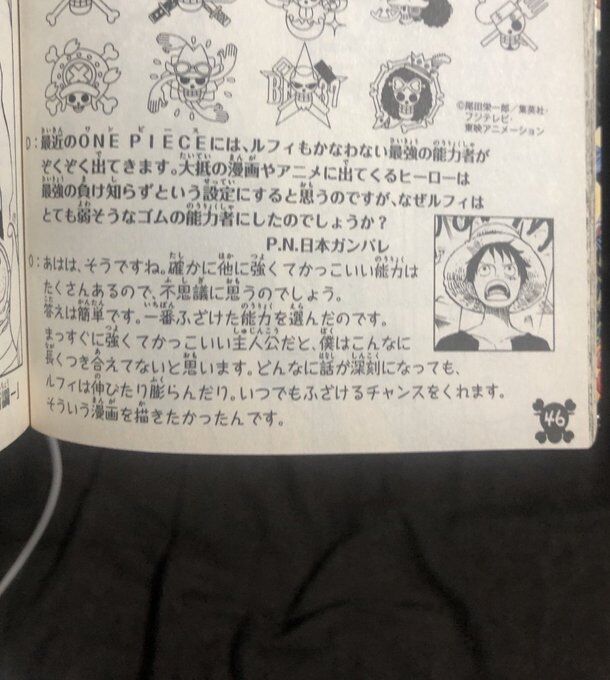 ©尾田栄一郎/集英社・
フジテレビ・
東映アニメーション
D:最近のONE PIECEには、ルフィもかなわない最強の能力者が
ぞくぞく出てきます。大抵の漫画やアニメに出てくるヒーローは
最強の負け知らずという設定にすると思うのですが、なぜルフィは
とても弱そうなゴムの能力者にしたのでしょうか?
P.N.日本ガンバレ
O:あはは、そうですね。確かに他に強くてかっこいい能力は
たくさんあるので、不思議に思うのでしょう。
答えは簡単です。一番ふざけた能力を選んだのです。
まっすぐに強くてかっこいい主人公だと、僕はこんなに
長くつき合えてないと思います。どんなに話が深刻になっても、
ルフィは伸びたり膨らんだり。いつでもふざけるチャンスをくれます。
そういう漫画を描きたかったんです。
46